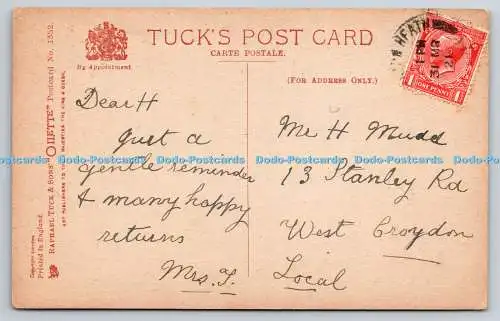 TUCK'S POST CARD
CARTE POSTALE.
By Appointment.
(FOR ADDRESS ONLY.)
RAPHAEL TUCK & SONS' "OILETTE" Postcard No. 1352.
ART PUBLISHERS TO THEIR MAJESTIES THE KING & QUEEN.
Printed in England.
HEATH
ONE PENNY
Dear H
Just a
gentle reminder
& many happy
returns
Mrs. T.
Mr H Mudd
13 Stanley Rd
West Croydon
Local
Dodo-Postcards Dodo-Postcards Dodo-Postcards Dodo-Postcards Dodo-Postcards Dodo-Postcards